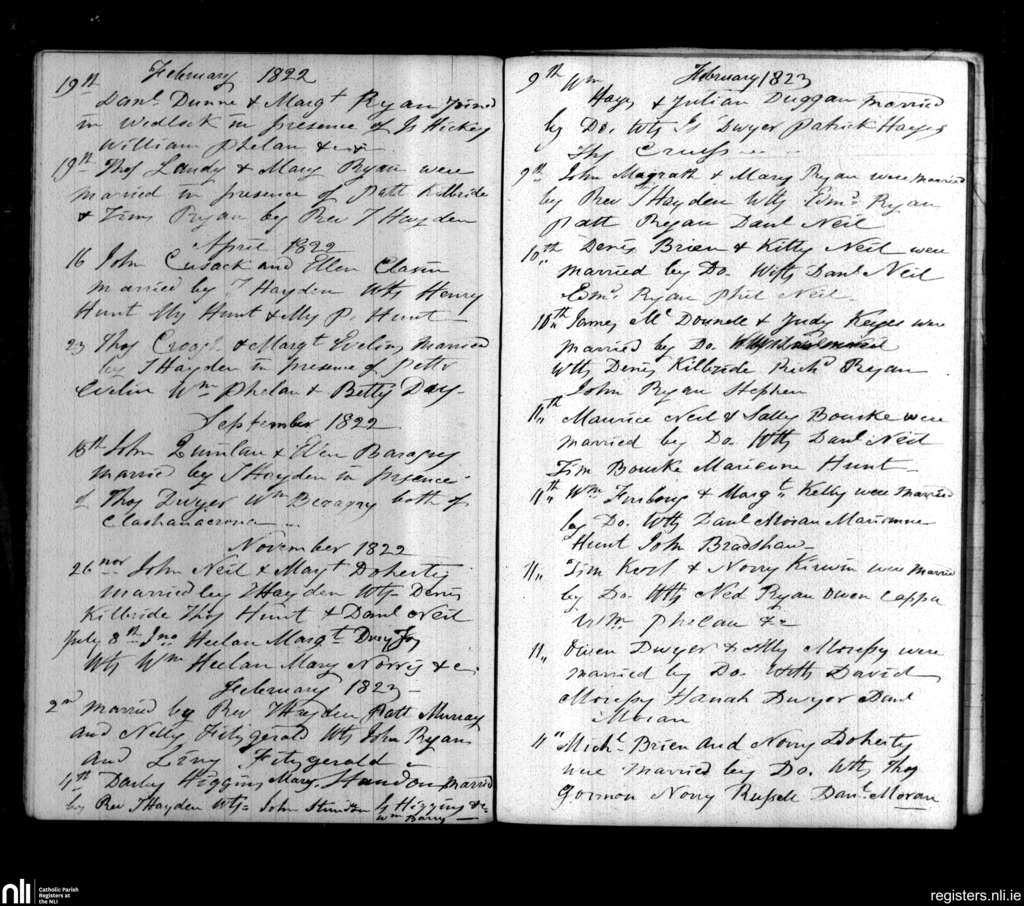 February 1822
19th
Danl. Dunne & Margt Ryan joined
in wedlock in presence of Js Hickey
William Phelan & &
19th Thos Landy & Mary Ryan were
married in presence of Patt Kilbride
& Tims Ryan by Rev T Hayden
April 1822
16 John Cusack and Ellen
married by T Hayden Wts Henry
Hunt My Hunt & My P. Hunt
23 Thos & Margt Evelin married
by T Hayden in presence of Pettr
Evelin Wm Phelan & Betty Day
September 1822
18th John Quinlan & Ellen
married by T Hayden in presence
of Thos Dwyer Wm both of
November 1822
26 nor John Neil & Mayt Doherty
married by T Hayden Wts Denis
Kilbride Thos Hunt & Danl Neil
July 8th Jno Heelan Margt
Wts Wm Heelan Mary Norris & c
February 1823
2nd married by Rev T Hayden Patt Murray
and Nelly Fitzgerald Wts John Ryan
and Fitzgerald
4th Darby Higgins Mary married
by Rev T Hayden Wts John Higgins &c
Wm Barry
February 1823
9th Wm
Hays & Julian Duggan married
by Do. Wts Js Dwyer Patrick Hayes
Thos
9th John Magrath & Mary Ryan were married
by Rev T Hayden Wts Edmd Ryan
Patt Ryan Danl Neil
10th Denis Brien & Kitty Neil were
married by Do. Wtts Danl Neil
Edmd Ryan Phil Neil
10th James Mc Donnell & Judy Keyes were
married by Do.
Wtts Denis Kilbride Richd Ryan
John Ryan Stephen
11th Maurice Neil & Sally Bourke were
married by Do. Wtts Danl Neil
Tim Bourke Marianne Hunt
11th Wm & Margt Kelly were married
by Do. Wtts Danl Moran Marianne
Hunt John Bradshaw
11 Tim & Norry Kirwin were married
by Do. Wtts Ned Ryan Owen
Wm Phelan &c
11 Owen Dwyer & My were
married by Do. Wtts David
Hanah Dwyer Danl
Moran
11 Michl Brien and Norry Doherty
were married by Do. Wtts Thos
Gorman Norry Russell Danl Moran
nli
Catholic Parish
Registers at
the NLI
registers.nli.ie